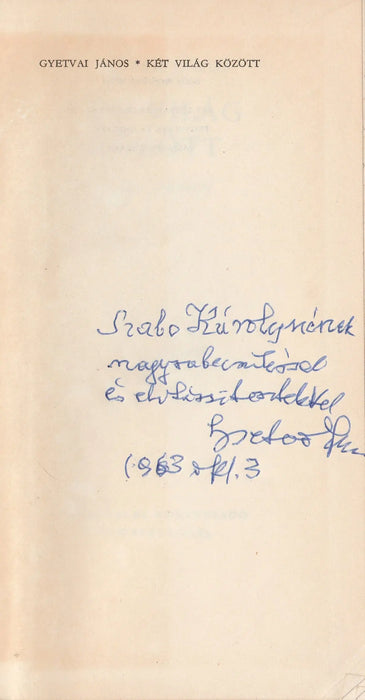 GYETVAI JÁNOS * KÉT VILÁG KÖZÖTT
Szabo Károlynénak
nagyrabecsüléssel
és elvtársi tisztelettel
Gyetvai János
1963 okt. 3